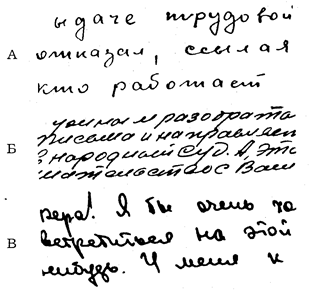 ыдаче трудовой
А отказал, ссылая
кто работает
разобрать
Б письма и направляет
в народный суд. А, это
с Ваш
вера! Я бы очень хо
В встретиться на этой
нибудь. У меня к